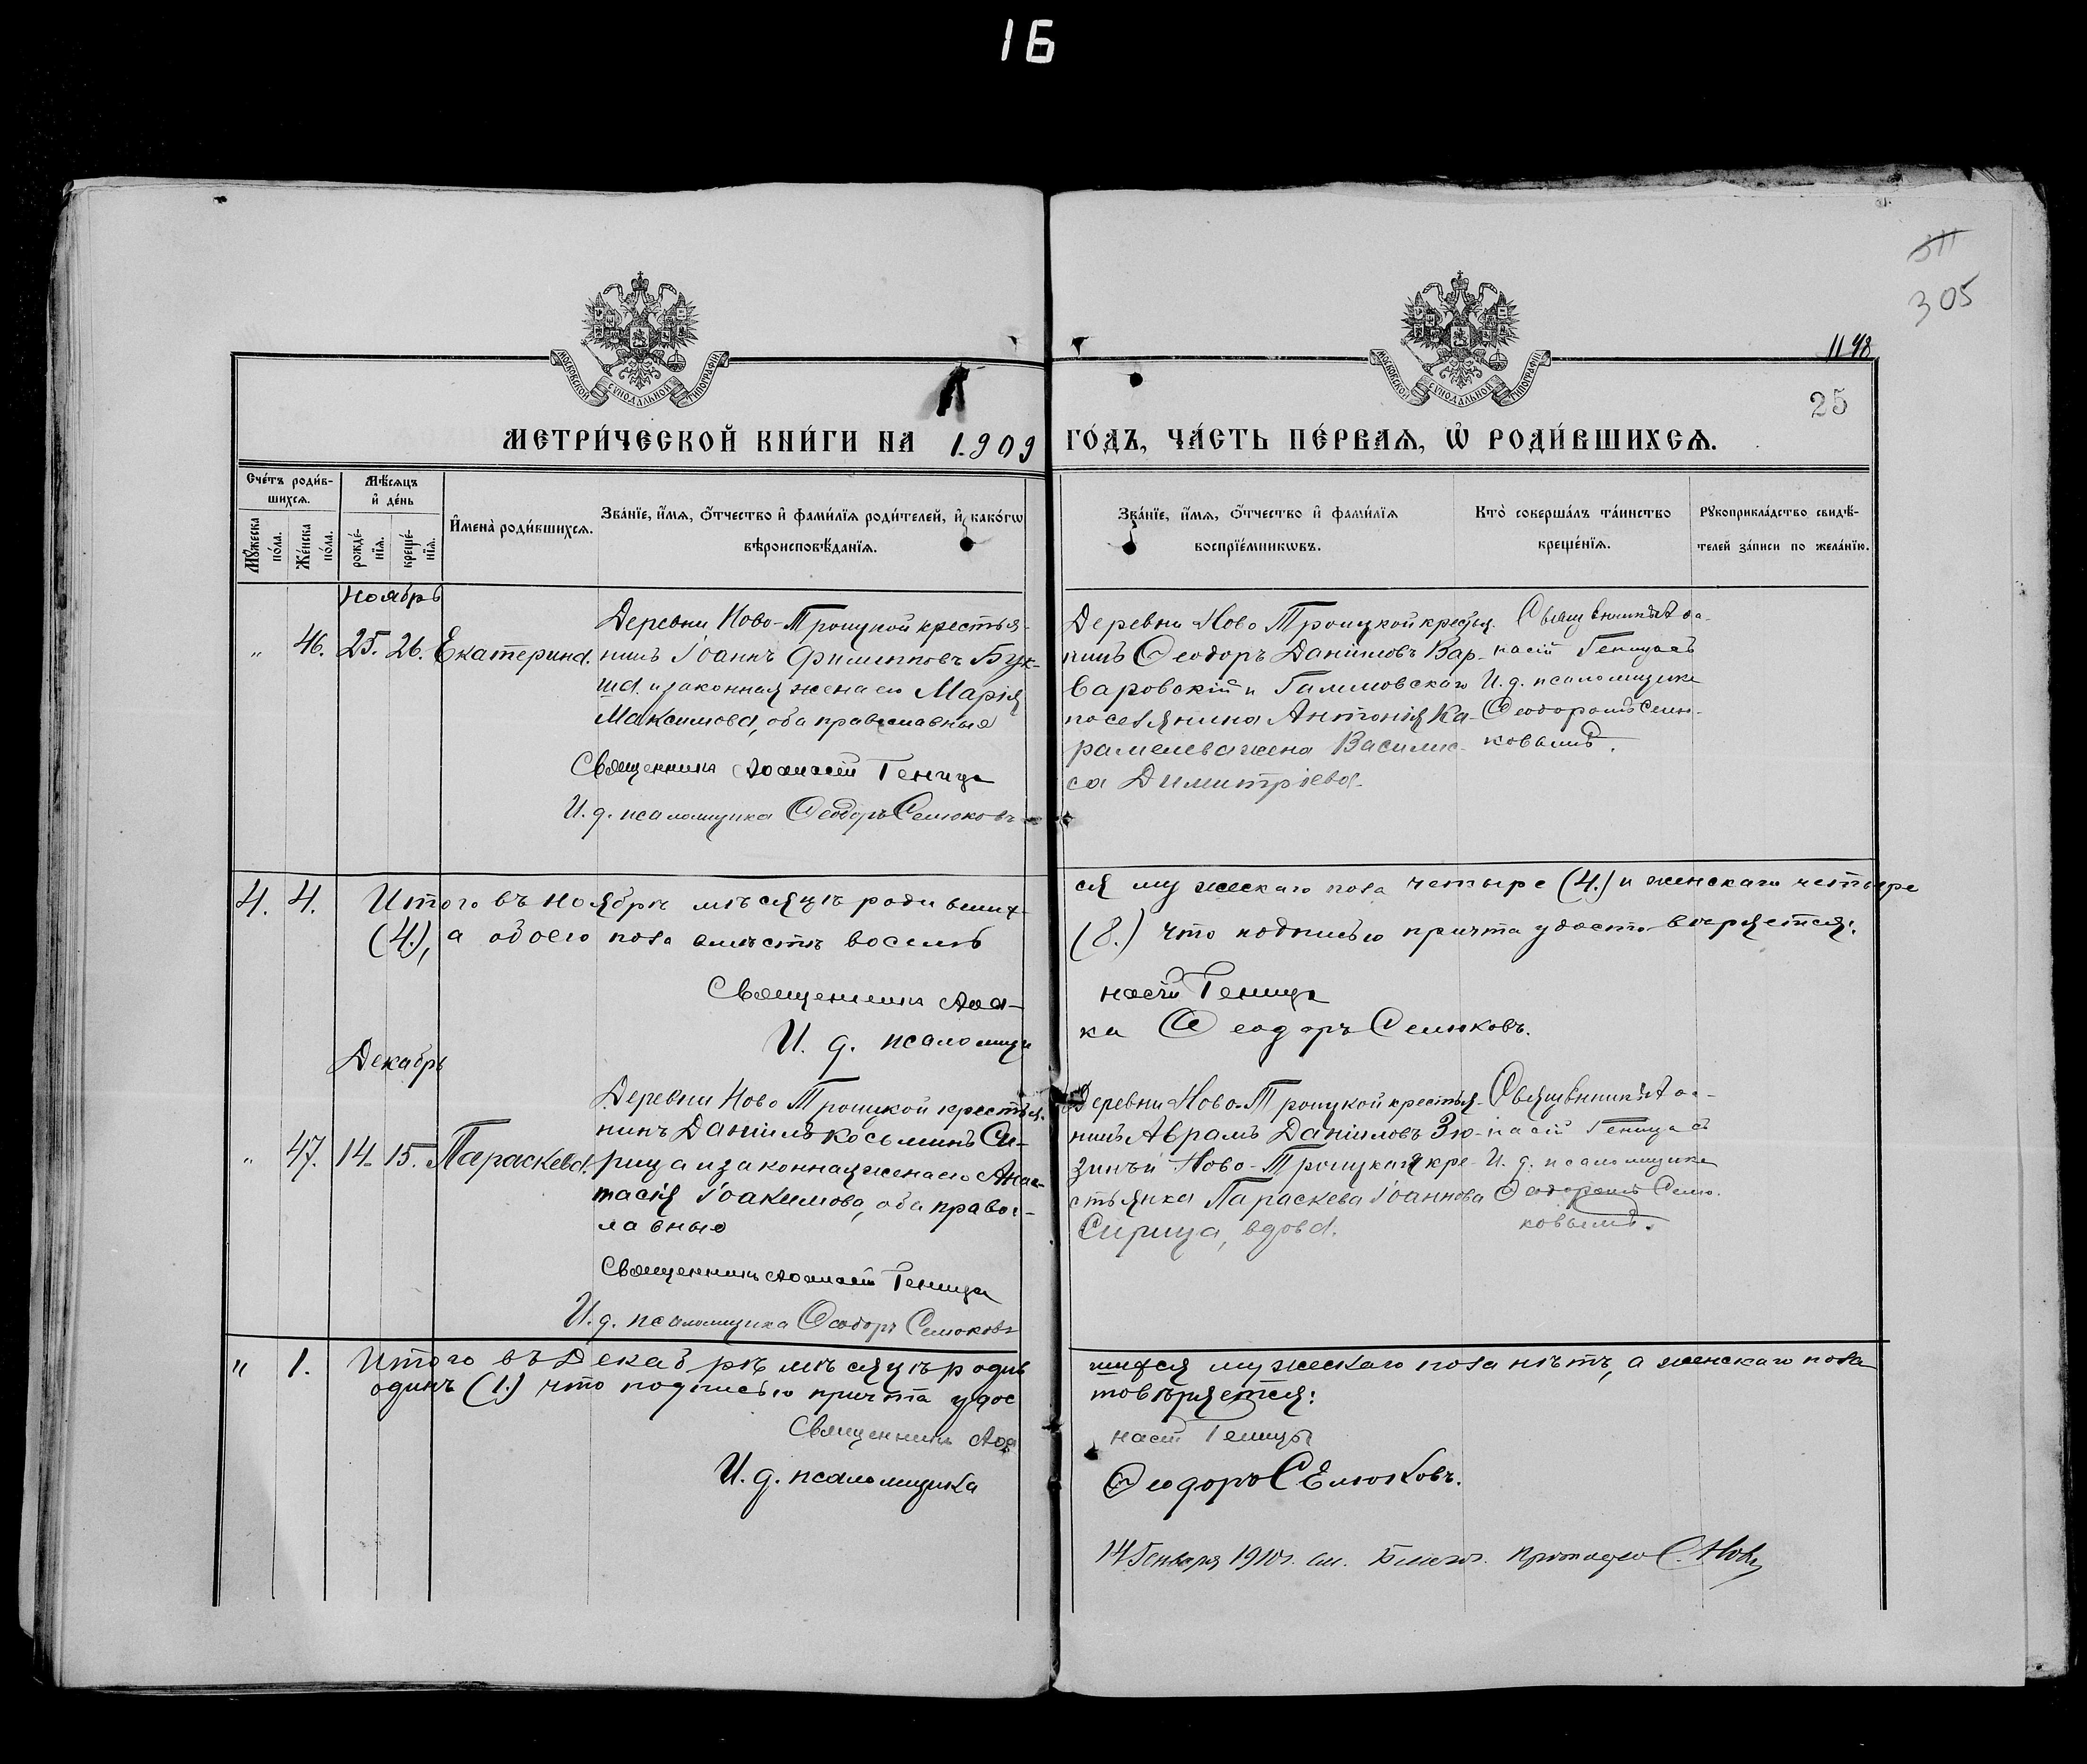 16
311
305
1148
25
МОСКОВСКОЙ СѴНОДАЛЬНОЙ ТИПОГРАФІИ
МОСКОВСКОЙ СѴНОДАЛЬНОЙ ТИПОГРАФІИ
МЕТРИ́ЧЕСКОЙ КНИ́ГИ НА 1909 ГО́ДЪ, ЧА́СТЬ ПЕ́РВАѦ, Ѿ РОДИ́ВШИХСѦ.
Сче́тъ роди́в-
шихсѧ.
Мѣ́сѧцъ
и҆ де́нь
Мꙋ́жеска
по́ла.
Же́нска
по́ла.
рожде́-
нїѧ.
креще́-
нїѧ.
И҆мена̀ роди́вшихсѧ.
Зва́нїе, и҆́мѧ, ѻ҆́тчество и҆ фами́лїѧ роди́телей, и҆ како́гѡ
вѣроисповѣ́данїѧ.
Зва́нїе, и҆́мѧ, ѻ҆́тчество и҆ фами́лїѧ
воспрїе́мникѡвъ.
Кто̀ соверша́лъ та́инство
креще́нїѧ.
Рꙋкоприкла́дство свидѣ́-
телей за́писи по жела́нїю.
Ноябрь
„ 46. 25. 26. Екатерина.
Деревни Ново-Троицкой крестья-
нинъ Іоаннъ Филипповъ Бук-
ша и законная жена его Марія
Максимова, оба православные
Священникъ Аѳанасій Геница
И. д. псаломщика Ѳеодоръ Селюковъ
Деревни Ново Троицкой крестья-
нинъ Ѳеодоръ Даніиловъ Вар-
варовскій и Галимовскаго
поселянина Антонія Ка-
рамелева жена Василис-
са Димитріева.
Священникъ Аѳа-
насій Геница съ
И. д. псаломщика
Ѳеодоромъ Селю-
ковымъ.
4. 4. Итого въ Ноябрѣ мѣсяцѣ родивших-
ся мужескаго пола четыре (4.) и женскаго четыре
(4.), а обоего пола вмѣстѣ восемь
(8.) что подписью причта удостовѣряется:
Священникъ Аѳа-
насій Геница
И. д. псаломщи
ка Ѳеодоръ Селюковъ.
Декабрь
„ 47. 14. 15. Параскева.
Деревни Ново Троицкой крестья-
нинъ Даніилъ Косьминъ Си-
рица и законная жена его Анас-
тасія Іоакимова, оба правос-
лавные
Священникъ Аѳанасій Геница
И. д. псаломщика Ѳеодоръ Селюковъ
Деревни Ново-Троицкой крестья-
нинъ Аврамъ Даніиловъ Зю-
зинъ и Ново-Троицкая кре-
стьянка Параскева Іоаннова
Сирица, вдова.
Священникъ Аѳа-
насій Геница съ
И. д. псаломщика
Ѳеодоромъ Селю-
ковымъ.
„ 1. Итого въ Декабрѣ мѣсяцѣ родив
шихся мужескаго пола нѣтъ, а женскаго пола
одинъ (1.) что подписью причта удос
товѣряется:
Священникъ Аѳа
насій Геница
И. д. псаломщика
Ѳеодоръ Селюковъ.
14 Генваря 1910 г.